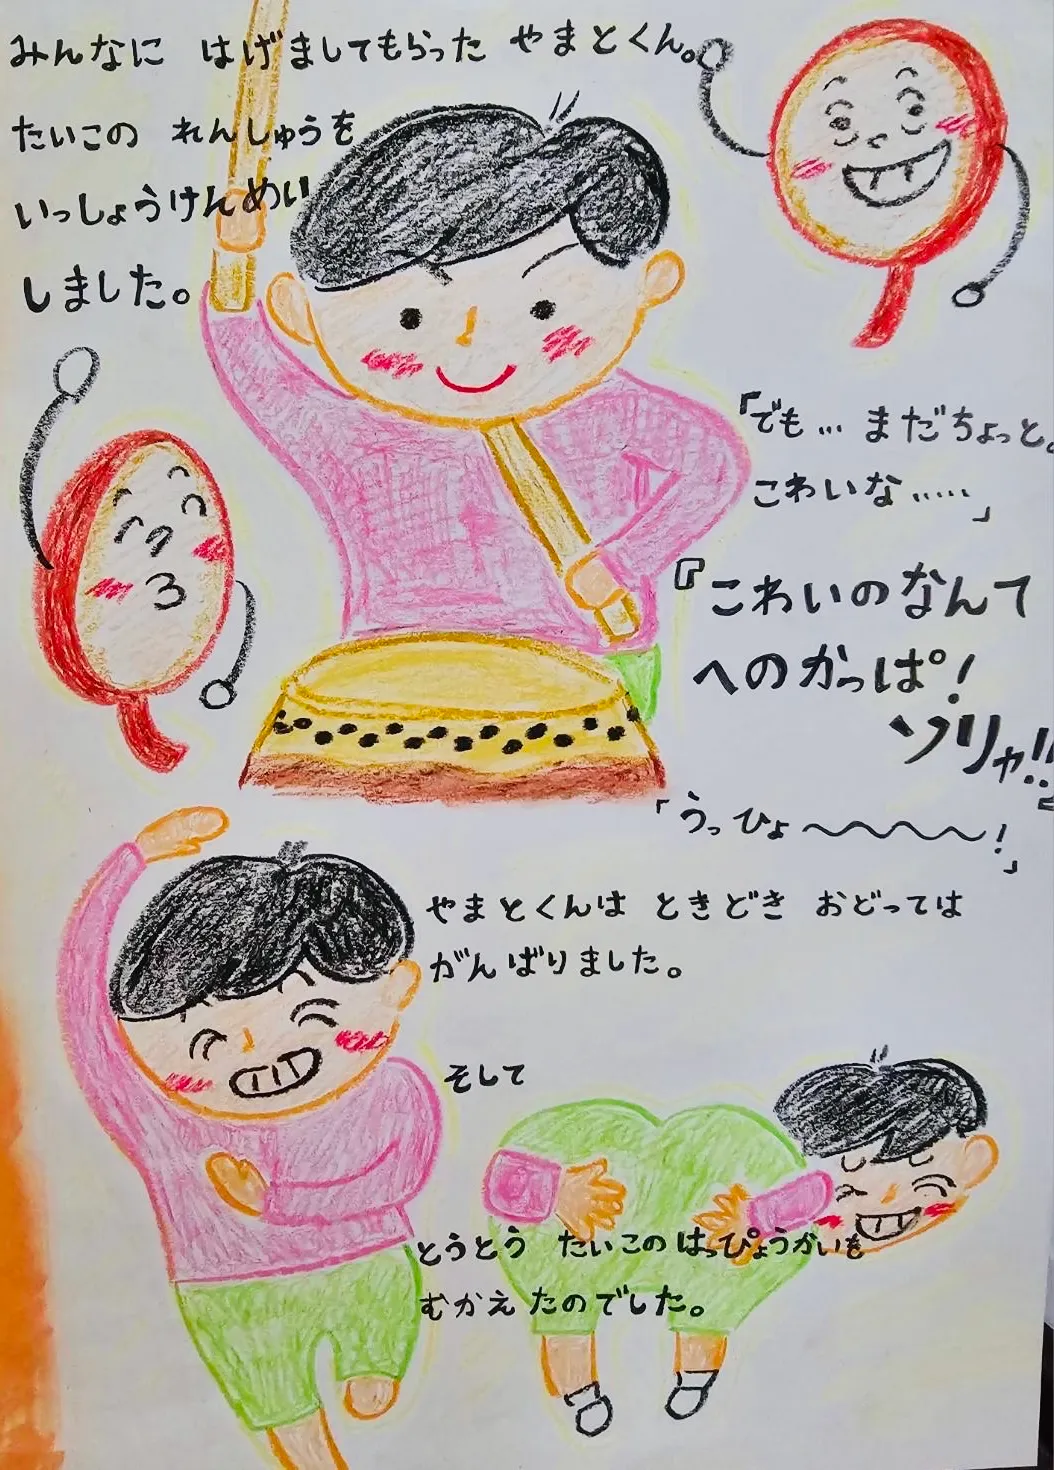 みんなに はげましてもらった やまとくん。
たいこの れんしゅうを
いっしょうけんめい
しました。
「でも… まだちょっと。
こわいな……」
『こわいのなんて
へのかっぱ!
ソリャ!!』
「うっひょ〜〜〜〜!」
やまとくんは ときどき おどっては
がんばりました。
そして
とうとう たいこの はっぴょうかいを
むかえたのでした。